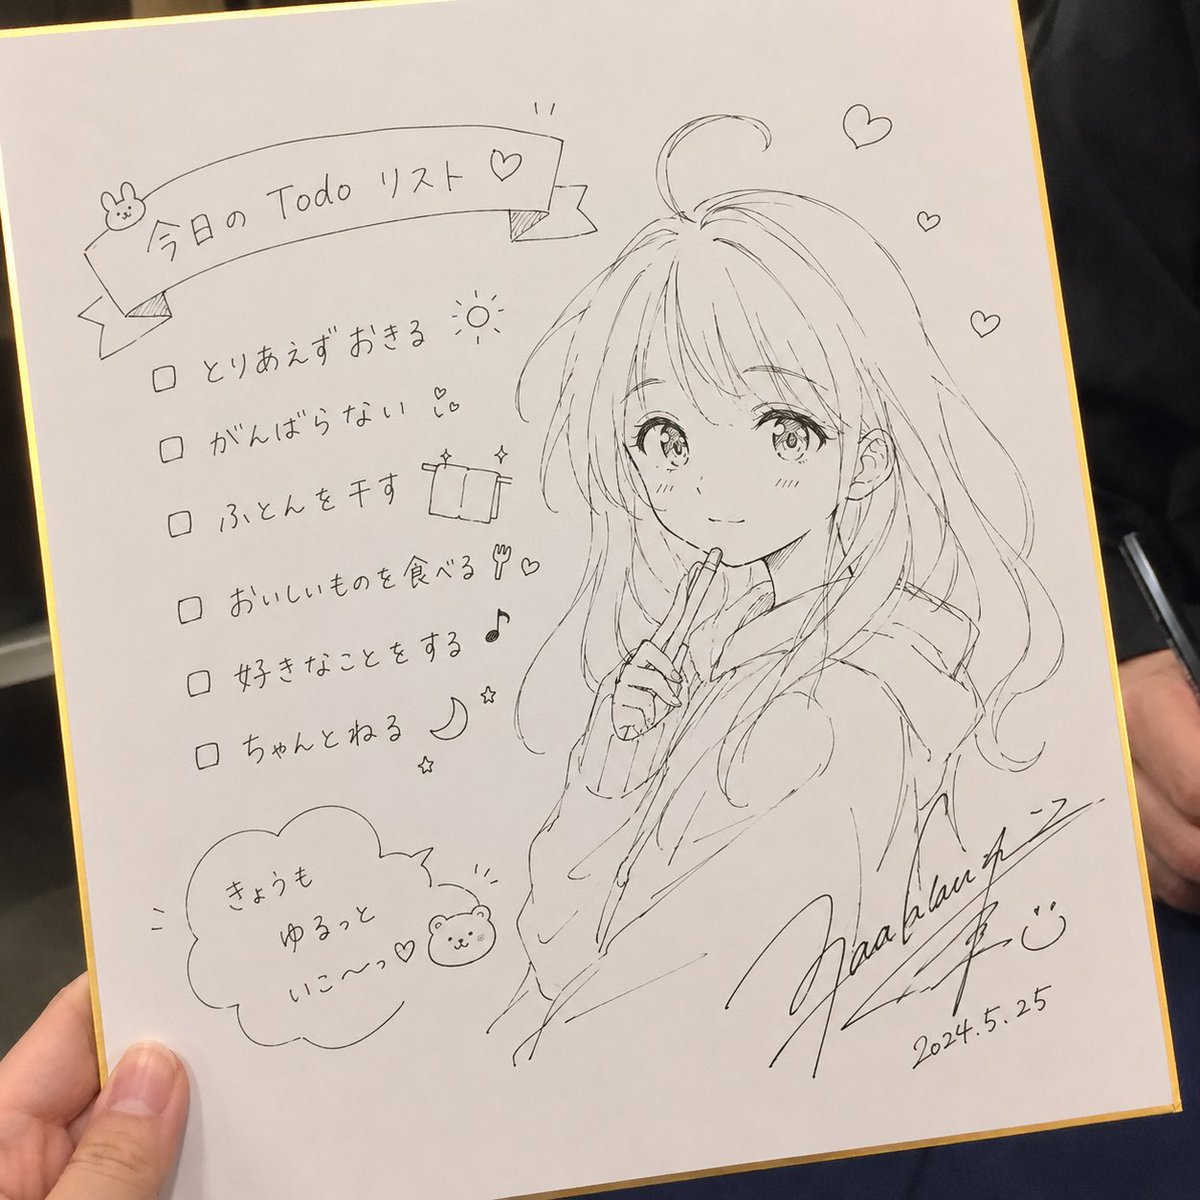 今日の Todo リスト ♡
□ とりあえずおきる
□ がんばらない
□ ふとんを干す
□ おいしいものを食べる
□ 好きなことをする
□ ちゃんとねる
きょうも
ゆるっと
いこ〜っ♡
2024.5.25